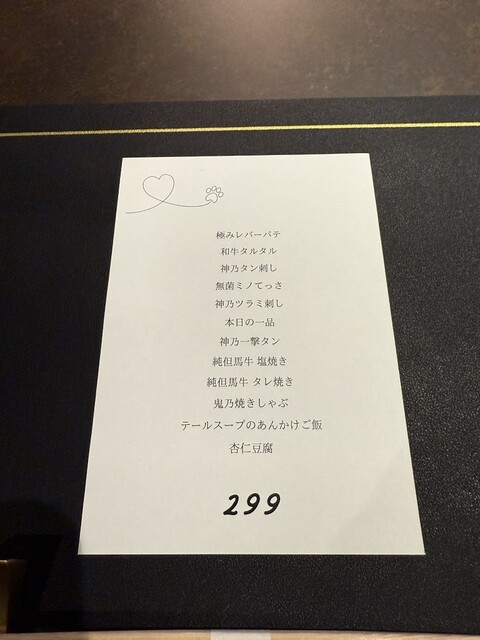 極みレバーパテ
和牛タルタル
神乃タン刺し
無菌ミノてっさ
神乃ツラミ刺し
本日の一品
神乃一撃タン
純但馬牛 塩焼き
純但馬牛 タレ焼き
鬼乃焼きしゃぶ
テールスープのあんかけご飯
杏仁豆腐
299